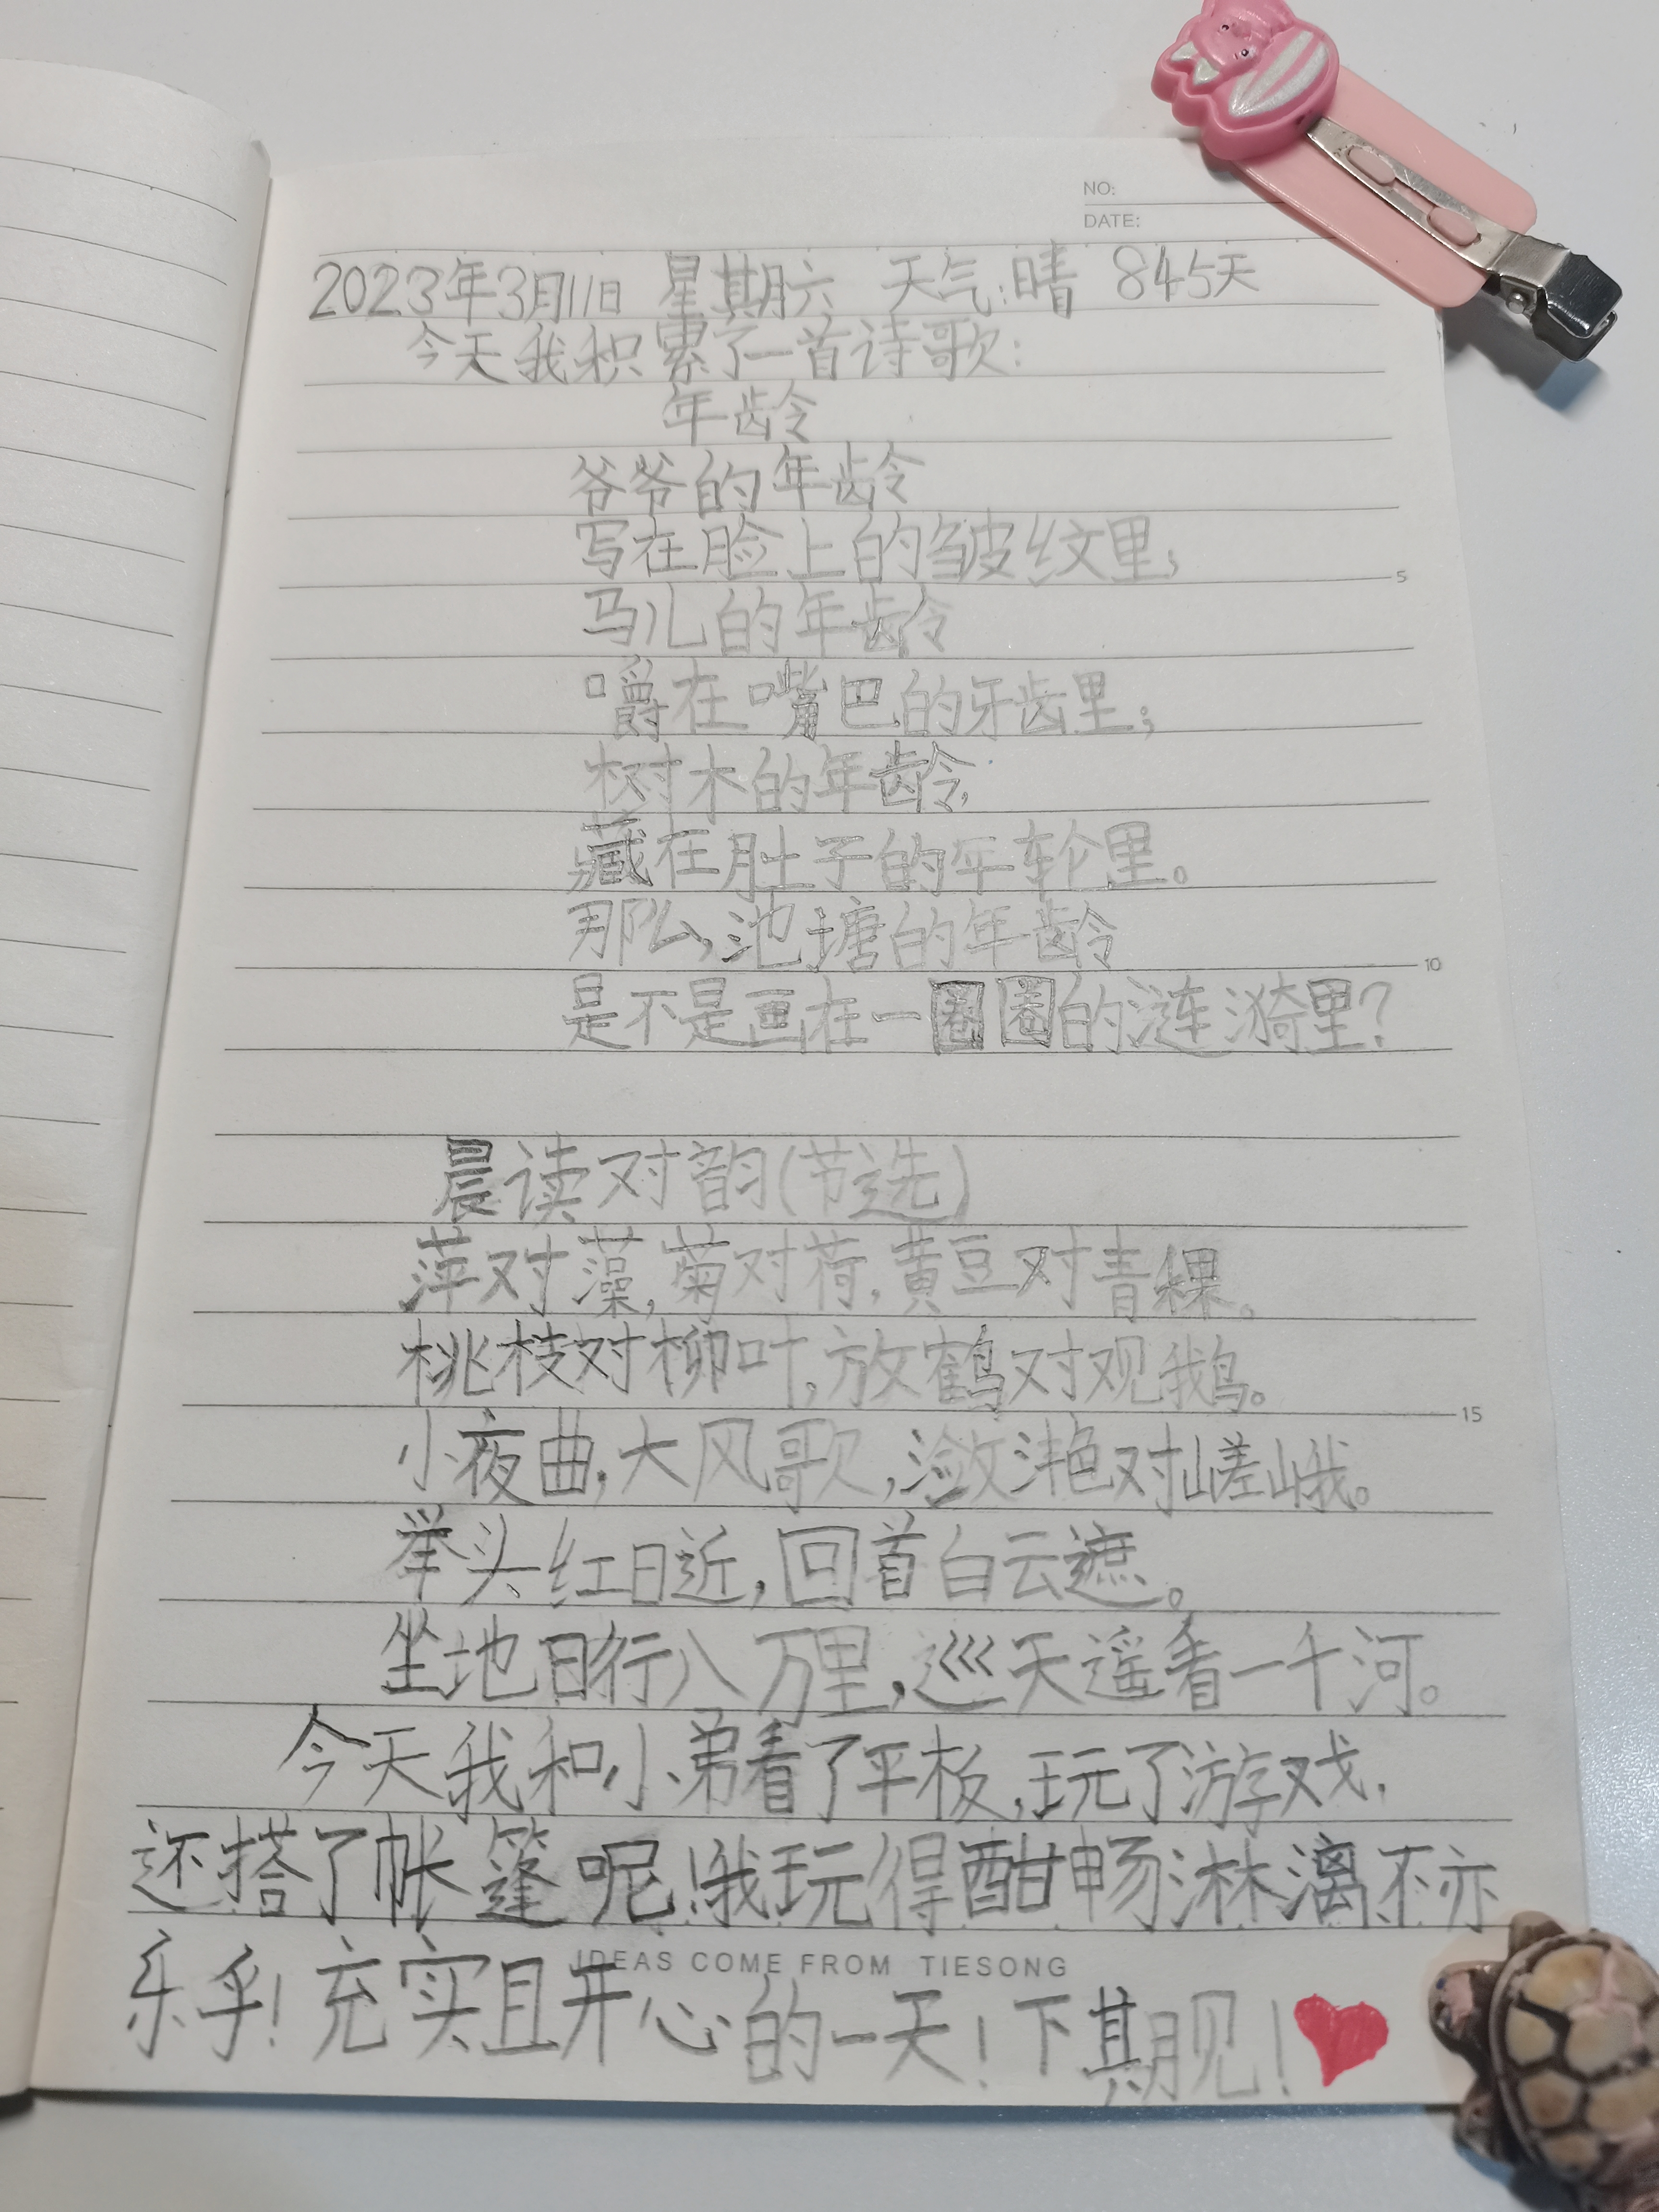 NO:
DATE:
2023年3月11日 星期六 天气:晴 845天
今天我积累了一首诗歌:
年龄
爷爷的年龄
写在脸上的皱纹里;
5
马儿的年龄
嚼在嘴巴的牙齿里;
树木的年龄,
藏在肚子的年轮里。
那么,池塘的年龄
10
是不是画在一圈圈的涟漪里?
晨读对韵(节选)
萍对藻,菊对荷,黄豆对青稞。
桃枝对柳叶,放鹤对观鹅。
15
小夜曲,大风歌,潋滟对嵯峨。
举头红日近,回首白云遮。
坐地日行八万里,巡天遥看一千河。
今天我和小弟看了平板,玩了游戏,
还搭了帐篷呢!我玩得酣畅淋漓不亦
乐乎!充实且开心的一天!下期见!
IDEAS COME FROM TIESONG